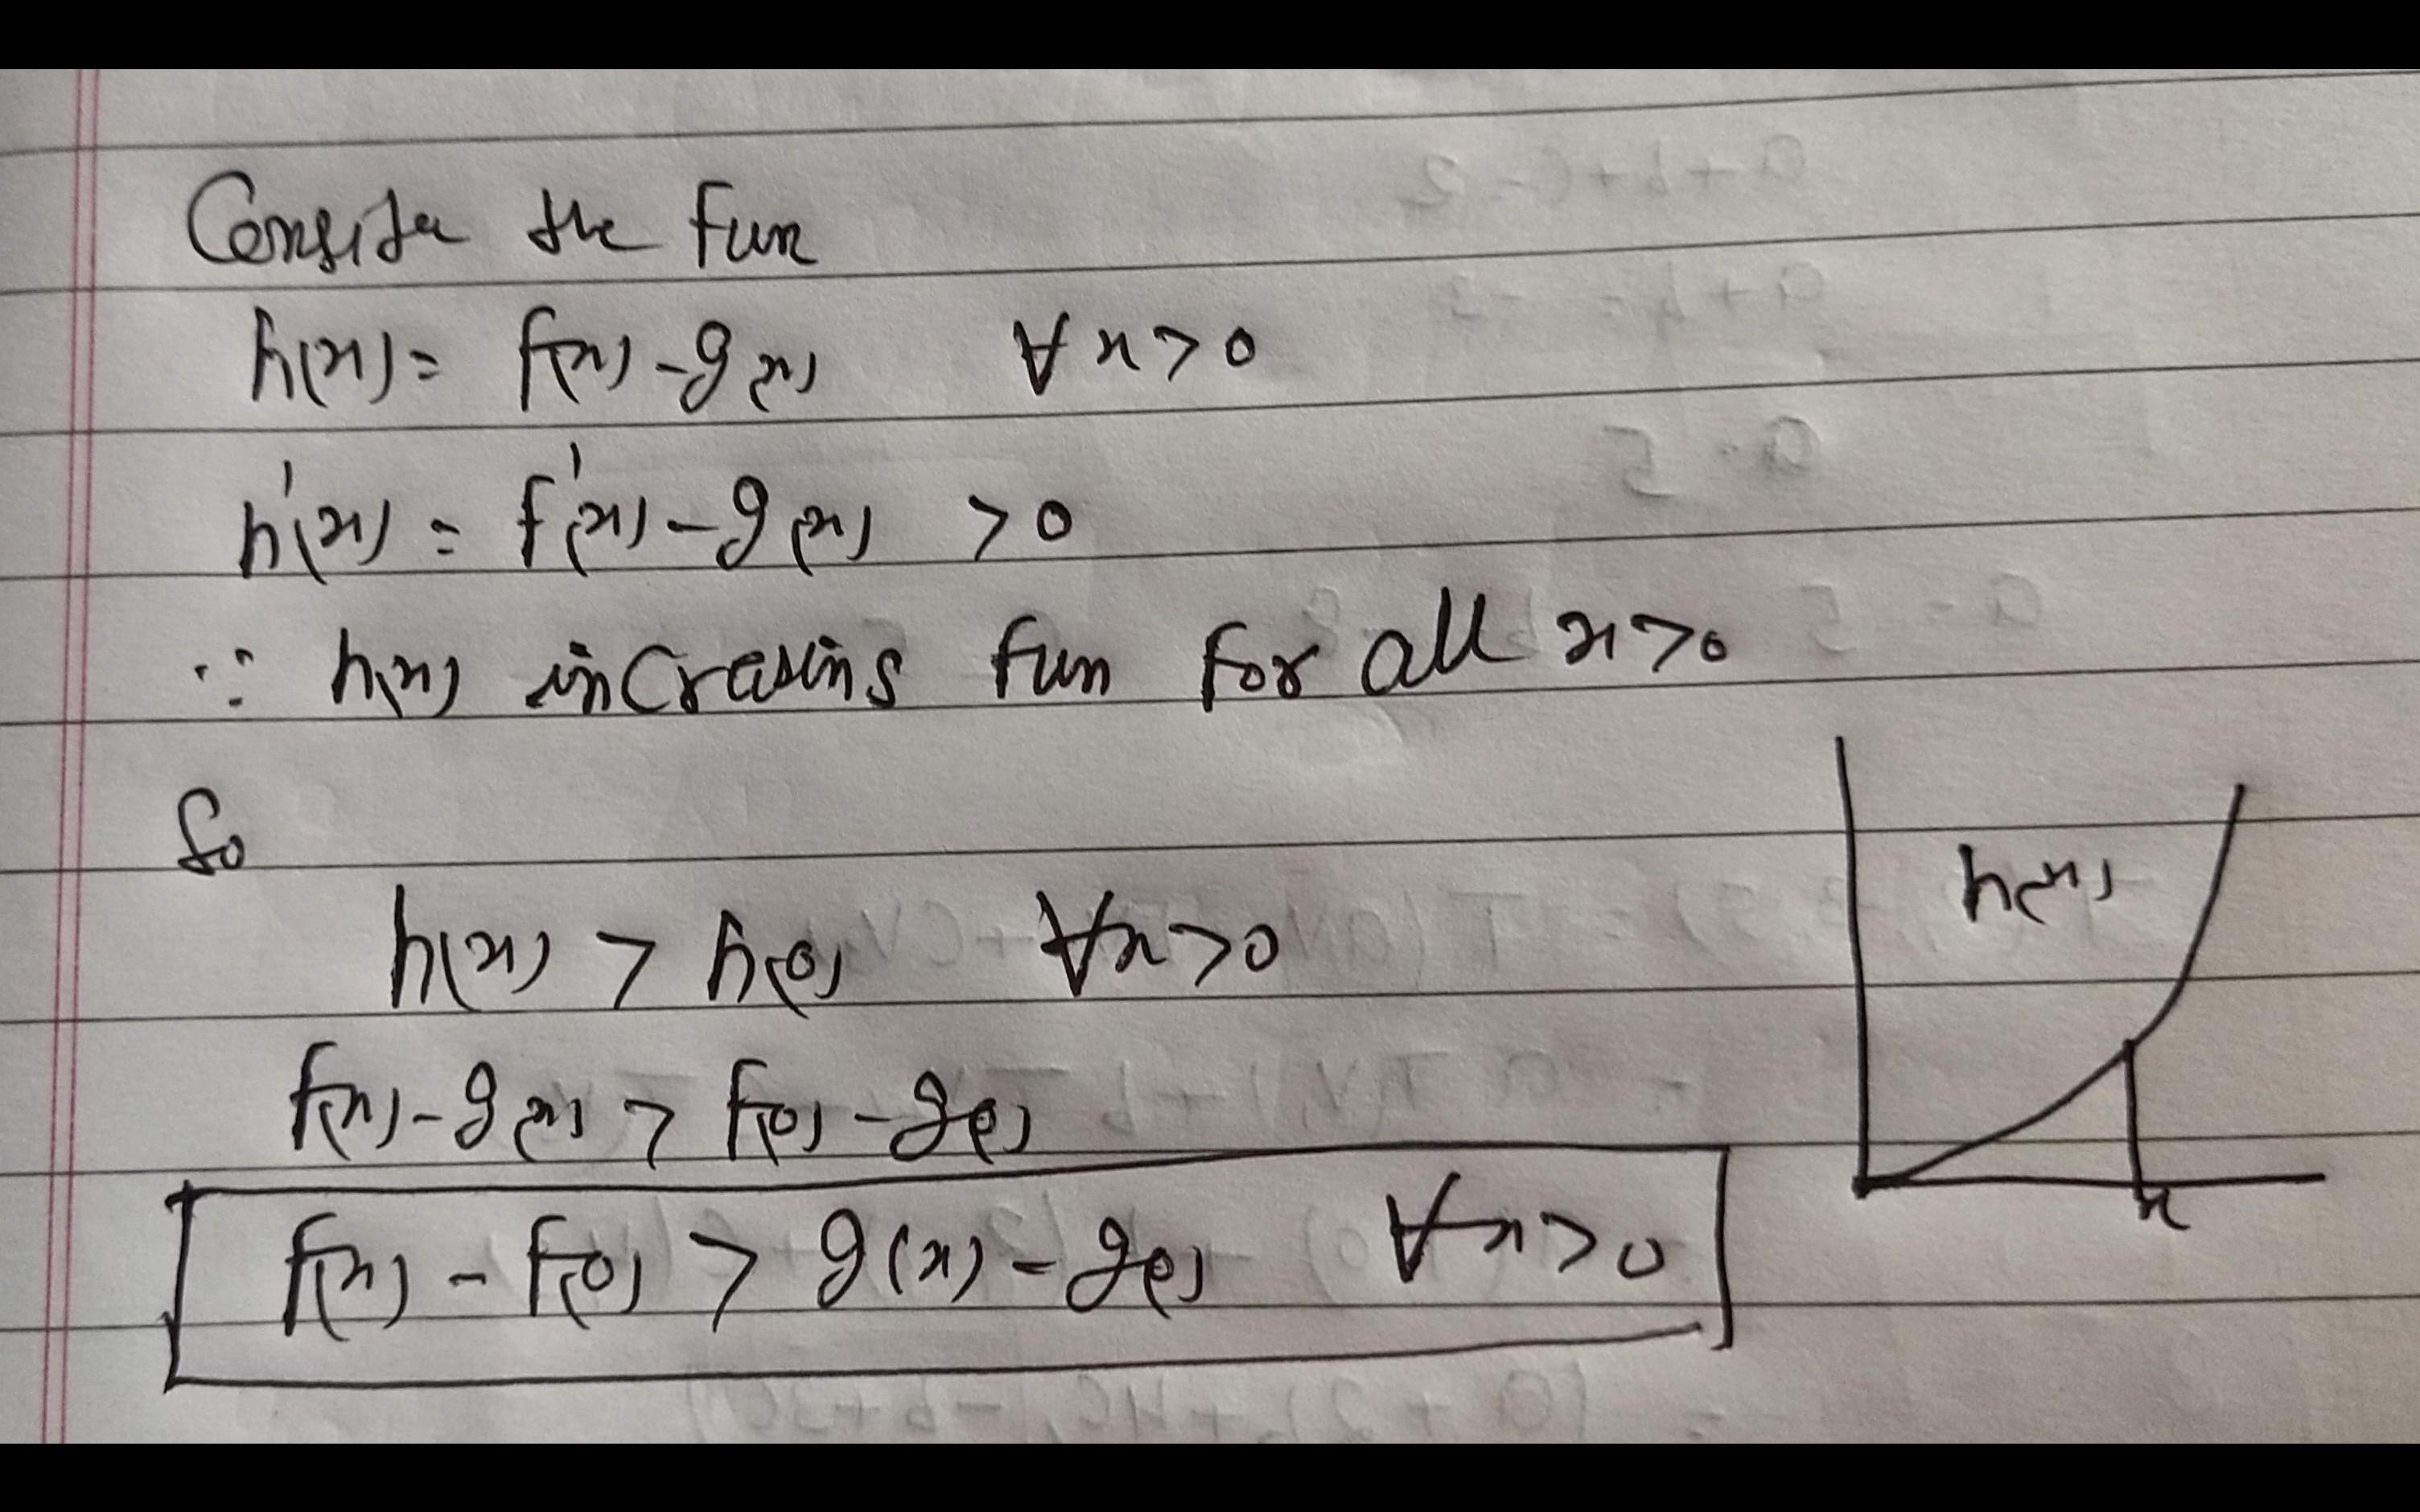 Consider the fun
h(x) = f(x) - g(x) ∀ x > 0
h'(x) = f'(x) - g(x) > 0
∵ h(x) incrasing fun for all x > 0
So
h(x) > h(0) ∀x > 0
h(x)
f(x) - g(x) > f(0) - g(0)
x
f(x) - f(0) > g(x) - g(0) ∀x > 0